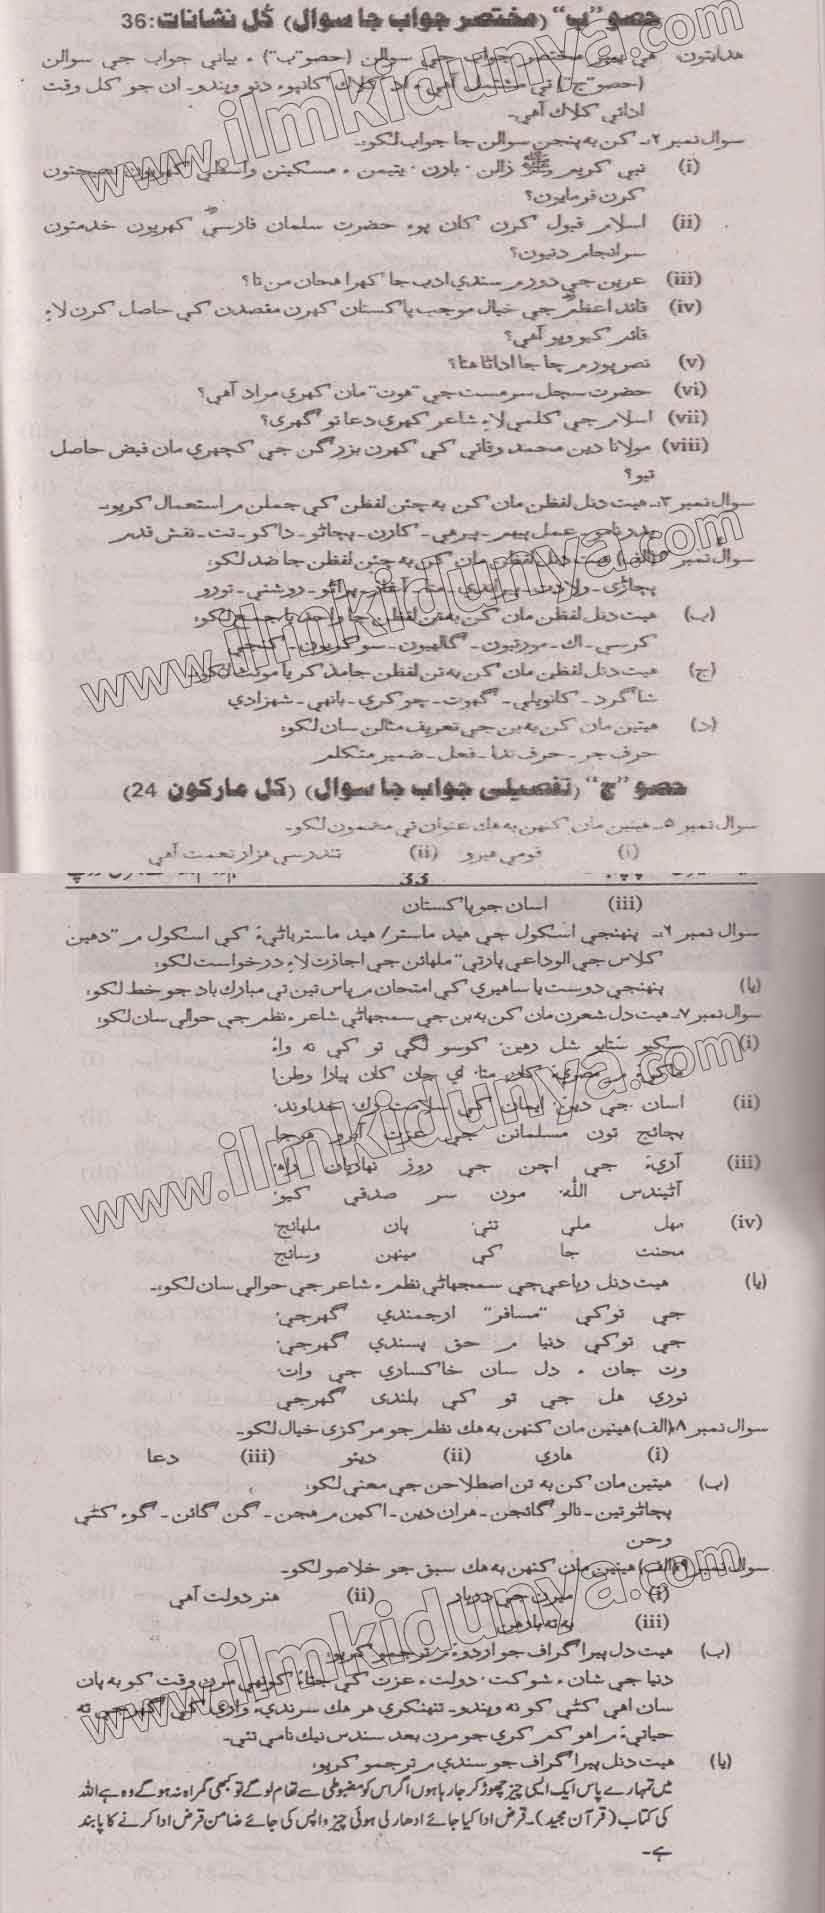 حصو "ب" (مختصر جواب جا سوال) کُل نشانات: 36
هدايتون هي پيپر مختصر جواب جي سوالن (حصو "ب") ۽ بياني جواب جي سوالن
(حصو "ج") تي مشتمل آهي ۽ اڍ ڪلاڪ کانپوءِ ڏنو ويندو۔ ان جو ڪل وقت
اڍائي ڪلاڪ آهي۔
سوال نمبر ۲۔ ڪن به پنجن سوالن جا جواب لکو:۔
(i) نبي ڪريم ﷺ زالن، ٻارن، يتيمن ۽ مسڪينن واسطي ڪهڙيون نصيحتون
ڪرڻ فرمايون؟
(ii) اسلام قبول ڪرڻ کان پوءِ حضرت سلمان فارسي ڪهڙيون خدمتون
سرانجام ڏنيون؟
(iii) عربن جي دور ۾ سنڌي ادب جا ڪهڙا اهڃاڻ مِن ٿا؟
(iv) قائد اعظم جي خيال موجب پاڪستان ڪهڙن مقصدن کي حاصل ڪرڻ لاءِ
قائم ڪيو ويو آهي؟
(v) نصرپور ۾ ڇا جا اڏاڻا هئا؟
(vi) حضرت سچل سرمست جي "هوت" مان ڪهڙي مراد آهي؟
(vii) اسلام جي ڪلمي لاءِ شاعر ڪهڙي دعا ٿو گهري؟
(viii) مولانا دين محمد وفائي کي ڪهڙن بزرگن جي ڪچهري مان فيض حاصل
ٿيو؟
سوال نمبر ۳۔ هيٺ ڏنل لفظن مان ڪن به چئن لفظن کي جملن ۾ استعمال ڪريو۔
پڌرنامو۔ عمل پيهر۔ پيرهي۔ ڪارڻ۔ پڇاڻو۔ ڌاڪو۔ تت۔ نقش قدم
سوال نمبر (الف) هيٺ ڏنل لفظن مان ڪن به چئن لفظن جا ضد لکو:
پڇاڙي۔ ولادت۔ پراندي۔ مٺا۔ آغاز۔ پراڻو۔ روشني۔ ٿورو
(ب) هيٺ ڏنل لفظن مان ڪن به ٽن لفظن جا واحد يا جمع لکو:
ڪرسي۔ اک۔ مورتيون۔ ڳالهيون۔ سوکڙيون۔ ڪنجي
(ج) هيٺ ڏنل لفظن مان ڪن به ٽن لفظن جا مذڪر يا مونث لکو۔
شاگرد۔ ڪانويلي۔ گهوٽ۔ ڇوڪري۔ ٻانهي۔ شهزادي
(د) هيٺين مان ڪن به ٻن جي تعريف مثالن سان لکو:
حرف جر۔ حرف ندا۔ فعل۔ ضمير متڪلم
حصو "ج" (تفصيلي جواب جا سوال) (کل مارکون 24)
سوال نمبر ۵۔ هيٺين مان ڪنهن به هڪ عنوان تي مضمون لکو۔
(i) قومي هيرو (ii) تندرستي هزار نعمت آهي
33
(iii) اسان جو پاڪستان
سوال نمبر ۶۔ پنهنجي اسڪول جي هيڊ ماستر/ هيڊ ماسترياڻيءَ کي اسڪول ۾ "ڏهين
ڪلاس جي الوداعي پارٽي" ملهائڻ جي اجازت لاءِ درخواست لکو:
(يا) پنهنجي دوست يا ساهيڙي کي امتحان ۾ پاس ٿيڻ تي مبارڪ باد جو خط لکو:
سوال نمبر ۷۔ هيٺ ڏنل شعرن مان ڪن به ٻن جي سمجهاڻي شاعر ۽ نظم جي حوالي سان لکو:
(i) سکيو ستابو شل رهين، ڪوسو لڳي تو کي نه واءُ
ماکيءَ ۾ مصريءَ کان مٺا، اي جان کان پيارا وطن!
(ii) اسان جي دين، ايمان کي سلامت رک، خداوند،
بچائج تون مسلمانن جي عزت آبرو هرجا
(iii) آريءَ جي اچڻ جي روز نهاريان راهه،
آڻيندس الله، مون سر صدقي ڪيو،
(iv) مهل ملي تئي، پاڻ ملهائج
محنت جا کي مينهن وسائج
(يا) هيٺ ڏنل رباعي جي سمجهاڻي نظم ۽ شاعر جي حوالي سان لکو:۔
جي توکي "مسافر" ارجمندي گهرجي،
جي توکي دنيا ۾ حق پسندي گهرجي،
وٺ جان ۽ دل سان خاڪساري جي واٽ،
نوڙي هل جي تو کي بلندي گهرجي
سوال نمبر ۸ (الف) هيٺين مان ڪنهن به هڪ نظم جو مرڪزي خيال لکو۔
(i) هاري (ii) ڏيئو (iii) دعا
(ب) هيٺين مان ڪن به ٽن اصطلاحن جي معنيٰ لکو:
پڇاڻو ٿيڻ۔ نالو ڳائجڻ۔ هران ڏيڻ۔ اکين ۾ هجڻ۔ گڻ ڳائڻ۔ گوءِ کڻي
وڃڻ
سوال نمبر ۹ (الف) هيٺين مان ڪنهن به هڪ سبق جو خلاصو لکو۔
(i) ميرن جي دربار (ii) هنر دولت آهي
(iii) به ته ٻارهن
(ب) هيٺ ڏنل پيراگراف جو اردوءَ ۾ ترجمو ڪريو:
دنيا جي شان ۽ شوڪت، دولت ۽ عزت کي جٽاءُ ڪونهي مرڻ وقت ڪو به پاڻ
سان اهي کڻي ڪو نه ويندو۔ تنهنڪري هر هڪ سرنديءَ واري کي گهرجي ته
حياتيءَ ۾ اهو ڪم ڪري جو مرڻ بعد سندس نيڪ نامي ٿئي۔
(يا) هيٺ ڏنل پيراگراف جو سنڌي ۾ ترجمو ڪريو:
میں تمہارے پاس ایک ایسی چیز چھوڑ کر جا رہا ہوں اگر اس کو مضبوطی سے تھام لو گے تو کبھی گمراہ نہ ہوگے وہ ہے اللہ
کی کتاب (قرآن مجید)۔ قرض ادا کیا جائے ادھار لی ہوئی چیز واپس کی جائے ضامن قرض ادا کرنے کا پابند
ہے۔
www.ilmkidunya.com
www.ilmkidunya.com
www.ilmkidunya.com
www.ilmkidunya.com